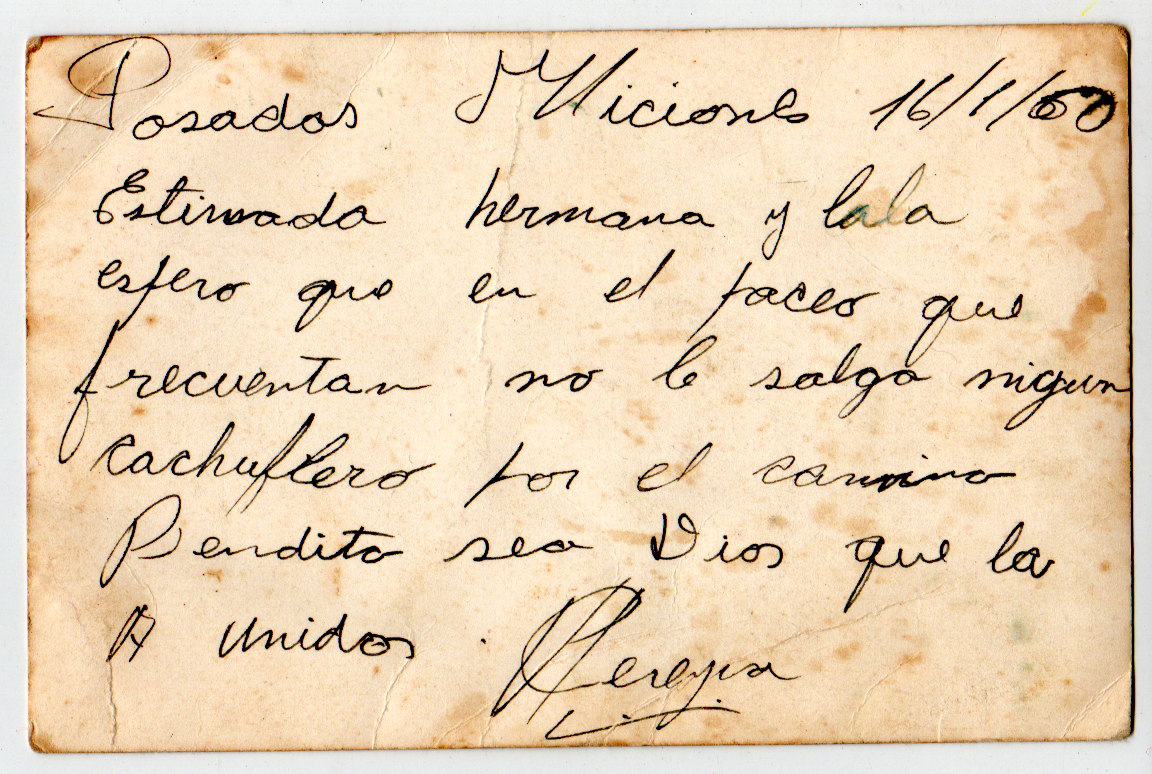 Posadas Miciones 16/1/60
Estimada hermana y lala
espero que en el paceo que
frecuentan no le salga nigun
cachuflero por el camino
Bendito sea Dios que la
A unidos.